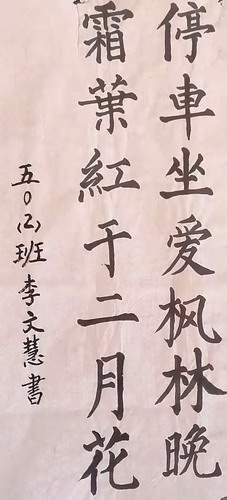 停車坐爱枫林晚
霜葉紅于二月花
五〇(二)班李文慧書